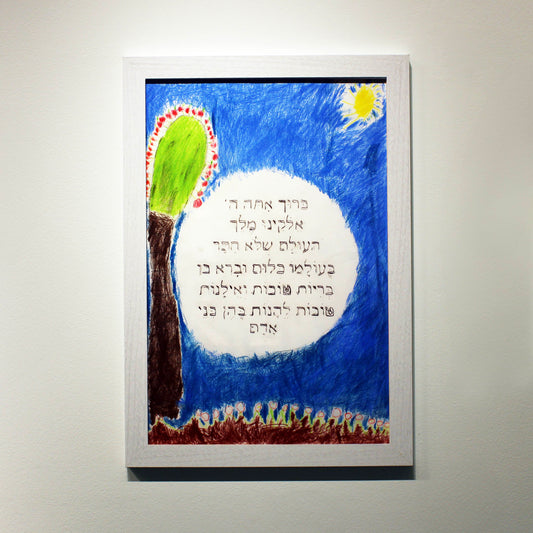 בָּרוּךְ אַתָּה ה'
אֱלֹקֵינוּ מֶלֶךְ
הָעוֹלָם שלא חִסַּר
בְּעוֹלָמוֹ כְּלוּם וּבָרָא בו
בְּרִיּוֹת טוֹבוֹת וְאִילָנוֹת
טוֹבוֹת לֵהָנוֹת בָּהֶן בְּנֵי
אָדָם